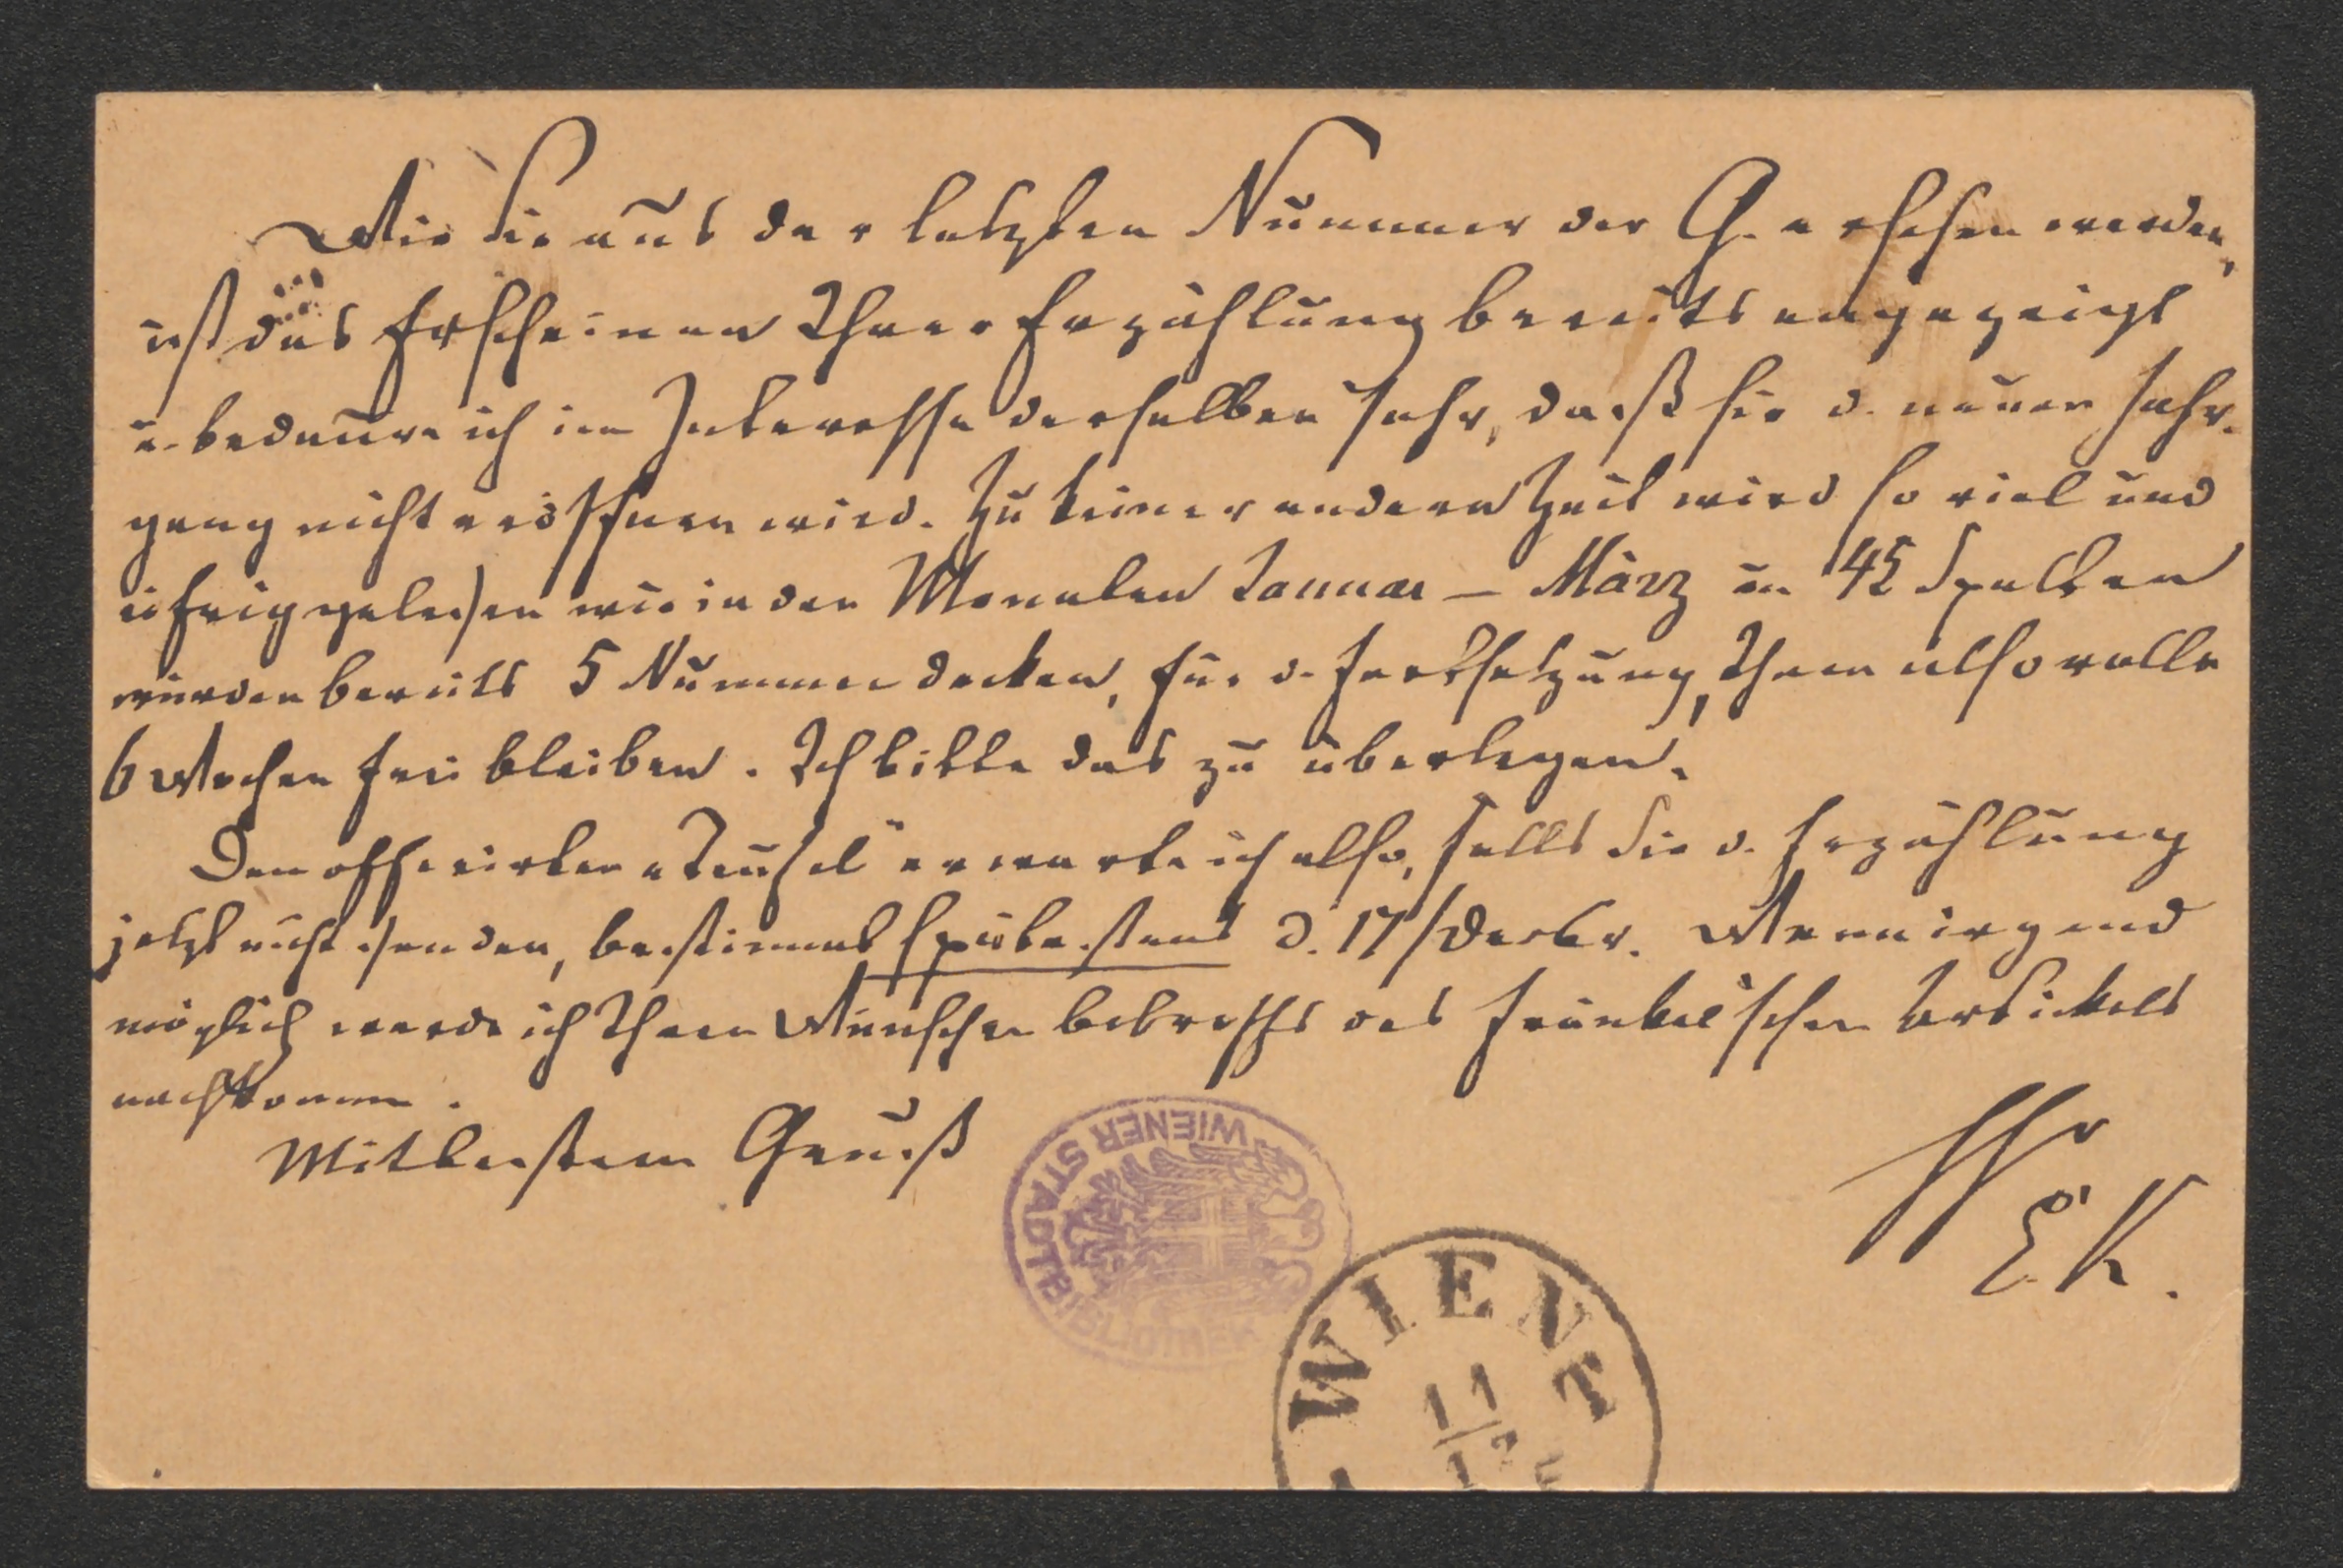 Wie Sie aus der letzten Nummer der G. ersehen werden,
ist das Erscheinen Ihrer Erzählung bereits angezeigt
u. bedaure ich im Interesse derselben sehr, daß sie d. neuen Jahr-
gang nicht eröffnen wird. Zu keiner andern Zeit wird so viel und
eifrig gelesen wie in den Monaten Januar – März u. 45 Spalten
würden bereits 5 Nummer decken, für d. Fortsetzung, Ihnen also volle
6 Wochen frei bleiben. Ich bitte das zu überlegen.
Den offerirten „Teufel“ erwarte ich also, falls Sie d. Erzählung
jetzt nicht senden, bestimmt spätestens d. 17/Decbr. Wenn irgend
möglich werde ich Ihren Wünschen betreffs des Fränkel'schen Artickels
nachkommen.
Mit bestem Gruß
Ihr
E K.
WIENER STADTBIBLIOTHEK
WIEN
11